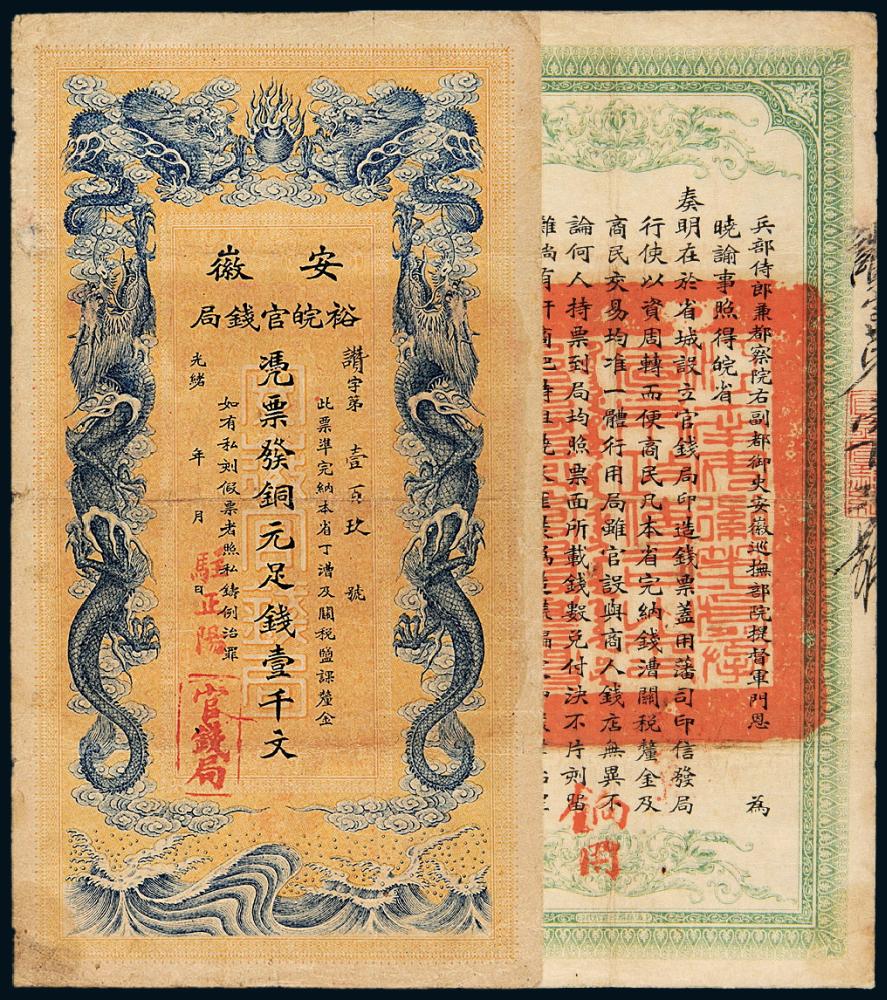 安徽
裕皖官錢局
讚字第壹百玖號
此票準完納本省丁漕及關稅鹽課釐金
凴票發銅元足錢壹千文
如有私刻假票者照私鑄例治罪
光緒 年 月 日
駐正陽
官錢局
兵部侍郎兼都察院右副都御史安徽巡撫部院提督軍門恩 為
曉諭事照得皖省
奏明在於省城設立官錢局印造錢票蓋用藩司印信發局
行使以資周轉而便商民凡本省完納錢漕關稅釐金及
商民交易均准一體行用局雖官設與商人錢店無異不
論何人持票到局均照票面所載錢數兌付決不片刻留